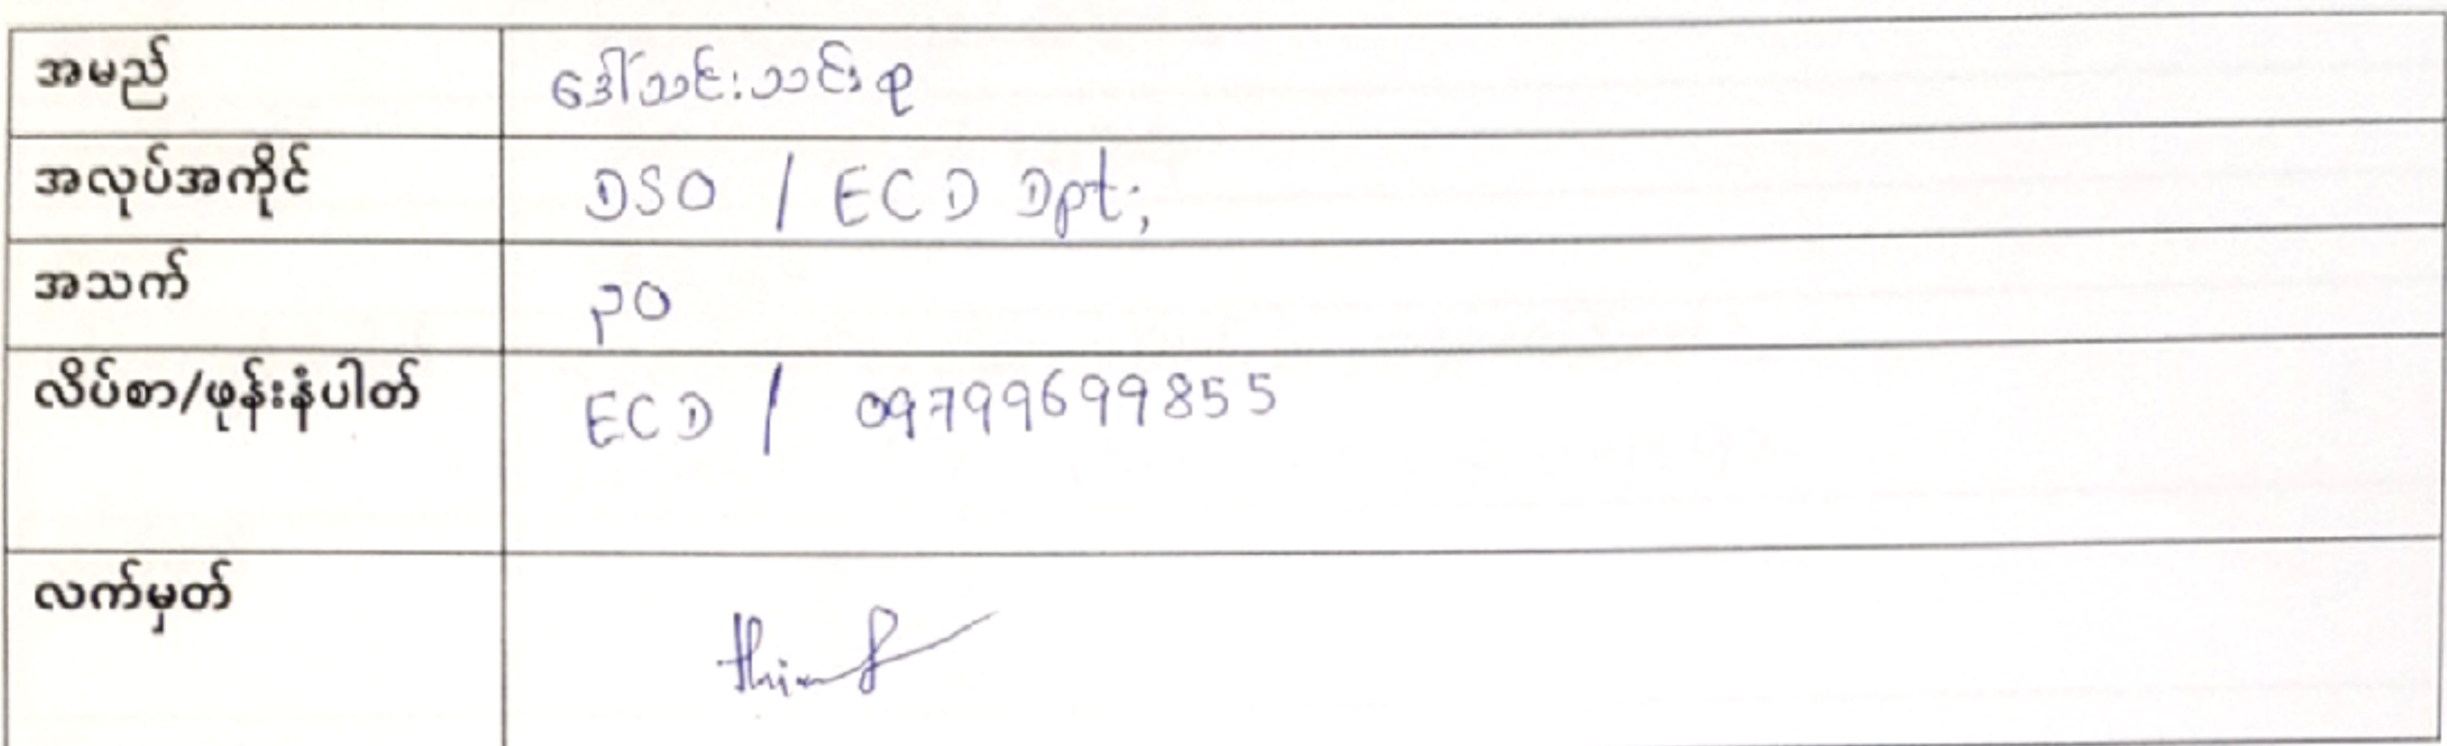 အမည် ဒေါ်သင်းသင်းစု
အလုပ်အကိုင် DSO / ECD Dpt;
အသက် ၃၀
လိပ်စာ/ဖုန်းနံပါတ် ECD / 09799699855
လက်မှတ်